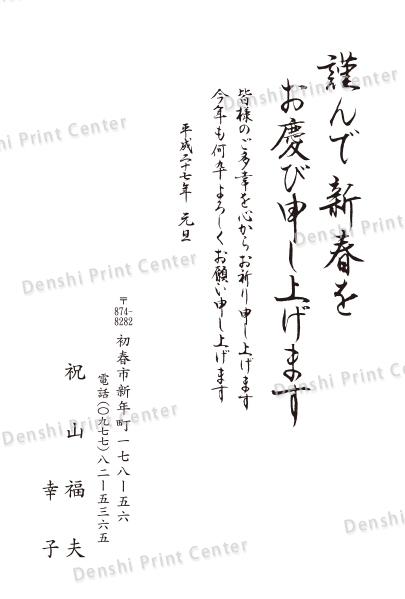 謹んで新春を
お慶び申し上げます
皆様のご多幸を心からお祈り申し上げます
今年も何卒よろしくお願い申し上げます
平成二十七年 元旦
〒874-8282
初春市新年町一七八ー五六
電話(〇九七七)八二ー五三六五
祝山福夫
幸子
Denshi Print Center
Denshi Print Center
Denshi Print Center
Denshi Print Center
Denshi Print Center
Denshi Print Center
Denshi Print Center
Denshi Print